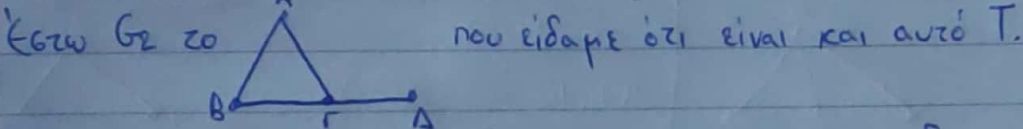 Έστω G2 το που είδαμε ότι είναι και αυτό T.
B Γ Δ